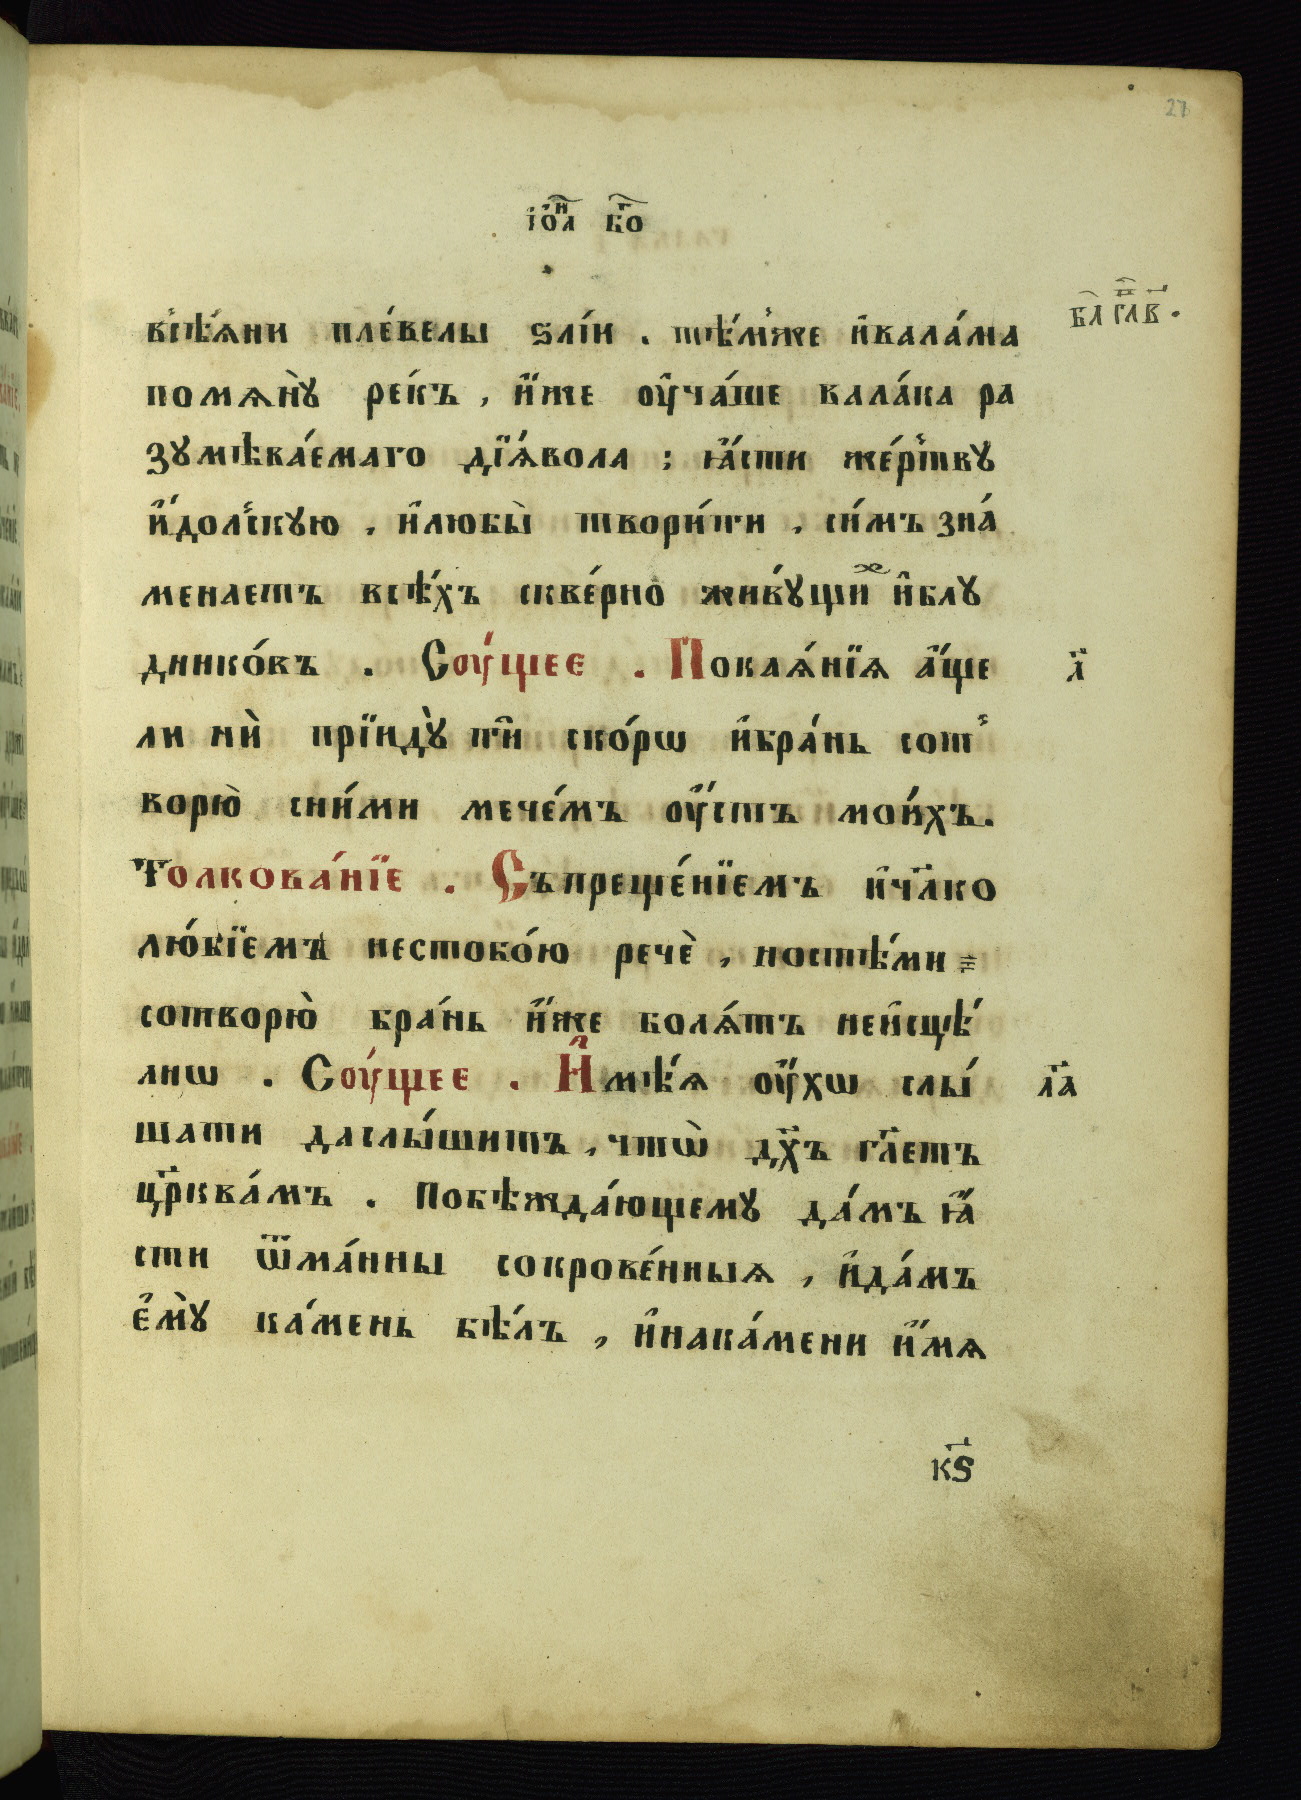 27
і҆ѡ҆́на бг҃о
всѣ́ѧни пле́велы ѕлі́и . тѣ́мже и҆вала́ма
помѧнꙋ̀ ре́къ , и҆́же ᲂу҆ча́ше вала́ка ра
зꙋмѣва́емаго дїѧ́вола ; ꙗ҆́сти же́ртвꙋ
и҆́долскꙋю , и҆любы̀ твори́ти , си́мъ зна́
менаетъ всѣ́хъ скве́рно живꙋ́щих и҆блꙋ
днико́въ . Сᲂу́щее . Покаѧ́нїѧ а҆́ще
ли нѝ прїидꙋ̀ ти̑ ско́рѡ и҆бра́нь сот
ворю̀ сни́ми мече́мъ ᲂу҆́стъ мои́хъ.
Толкова́нїе . Съпреще́нїемъ и҆чл҃ко
лю́бїемъ нестобо́ю речѐ , ностѣ́ми
сотворю̀ бра́нь и҆́же болѧ́тъ неи҆сцѣ́
лнѡ . Сᲂу́щее . И҆мѣ́ѧ ᲂу҆́хѡ слы́
шати даслы́шитъ , чтѡ̀ дх҃ъ гл҃етъ
цр҃ква́мъ . Побѣжда́ющемꙋ да́мъ ꙗ҆́
сти ѿма́нны сокрове́нныѧ , и҆да́мъ
є҆мꙋ̀ ка́мень бѣ́лъ , и҆нака́мени и҆́мѧ
л҃
л҃а
кѕ҃